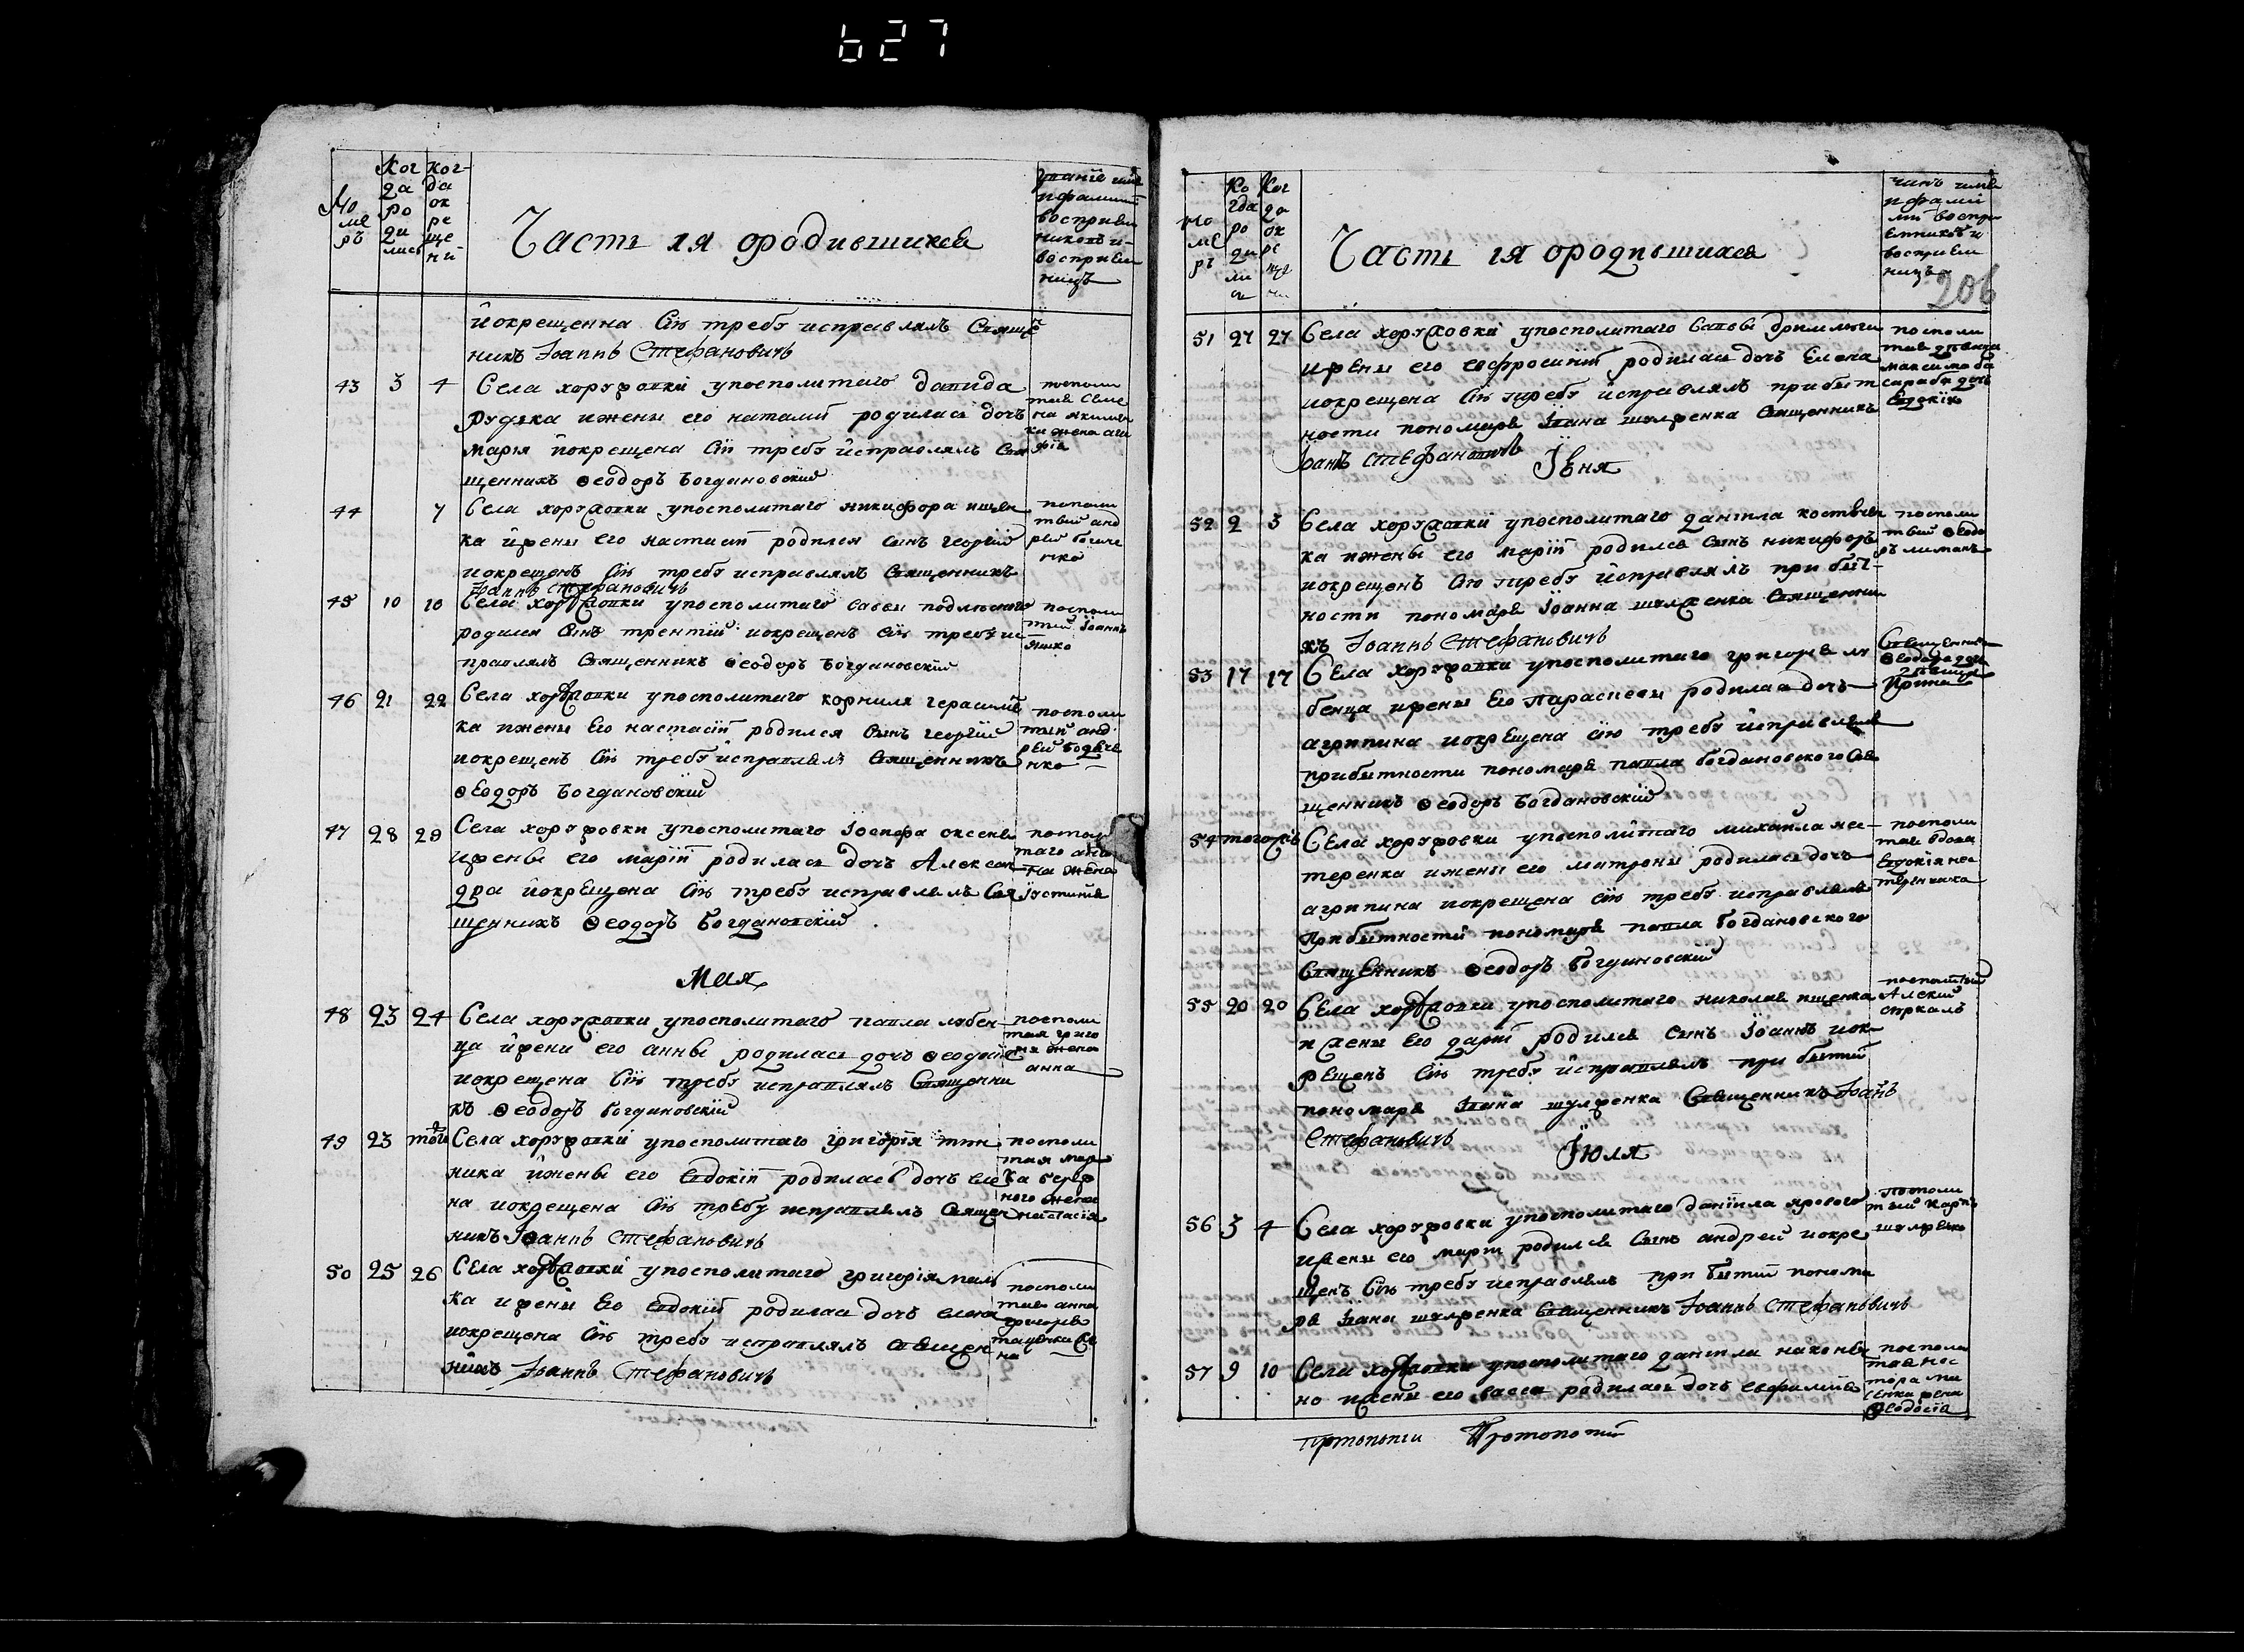 627
Но
ме
ръ
Ког
да
ро
ди
лись
Ког-
да
ок
ре
ще
ни
Часть 1я ородившихся
имя
ифамилїи
восприем
никовъ и-
восприем
ницъ
йокрещенна Сїю требу исправлялъ Свяще
никъ Іоаннъ Стефановичъ
43 3 4 Села хоружовки упосполитаго давида
рудька ижены его наталїи родилась дочь
марїя йокрещена Сїю требу исправлялъ Свя
щенникъ Ѳеодоръ Богдановскїй
посполи
тая
жена ага
фїя
44 7 Села хоружовки упосполитаго никифора ищен
ка йжены его настасїи родился сынъ георгїй
иокрещенъ Сїю требу исправлялъ Священникъ
Іоаннъ Стефановичъ
посполи
тый анд
рей
нко
45 10 10 Села хоружовки упосполитаго саввы
родился сынъ трентїй иокрещенъ сїю требу ис
правлялъ Священникъ Ѳеодоръ Богдановскїй
посполи
тый Іоаннъ
46 21 22 Села хоружовки упосполитаго корниля герасиме
ка ижены Его настасїи родился сынъ георгїй
иокрещенъ Сїю требу исправлялъ Священникъ
Ѳеодоръ Богдановскїй
посполи
тый анд
рей
нко
47 28 29 Села хоружовки упосполитаго Іосифа
ижены его марїи родилась дочь Алексан
дра йокрещена Сїю требу исправлялъ Свя
щенникъ Ѳеодоръ Богдановскїй
таго
на жена
Іустинїя
Мая
48 23 24 Села хоружовки упосполитаго павла любен
ца йжены его анны родилась дочь Ѳеодосїя
иокрещена Сїю требу исправлялъ Священни
къ Ѳеодоръ Богдановскїй
посполи
тая григо
рїя жена
анна
49 23 того Села хоружовки упосполитаго григорїя
ника йжены его Евдокїи родилась дочь еле
на иокрещена Сїю требу исправлялъ Священ
никъ Іоаннъ Стефановичъ
посполи
тая
ного жена
настасїя
50 25 26 Села хоружовки упосполитаго григорїя
ка ижены Его Евдокїи родилась дочь елена
иокрещена Сїю требу исправлялъ священ
никъ Іоаннъ Стефановичъ
посполи
тая анна
григорїя
на
Но
ме
ръ
Ко
гда
ро
ди
ли
Ког
да
ок
ре
ще
ни
Часть 1я ородившихся
чинъ имя
ифамил
їи воспри
емниковъ и
восприем
ницъ
206
51 27 27 Села хоружовки упосполитаго Саввы
ижены его евфросинїи родилась дочь Елена
иокрещена Сїю требу исправлялъ прибыт
ности пономаря Ивана шулженка Священникъ
Іоанъ Стефановичъ
посполи
тая девица
максима
дочь
Евдокїя
Іюня
52 2 3 Села хоружовки упосполитаго данїила
ка ижены его марїи родился сынъ никифоръ
иокрещенъ Сїю требу исправлялъ при быт-
ности пономаря Іоанна шулженка Священни
къ Іоаннъ Стефановичъ
посполи
тый Ѳеодо
ръ лиманъ
53 17 17 Села хоружовки упосполитаго григорїя лу
бенца ижены Его Параскевы родилась дочь
агрипина иокрещена сїю требу исправлялъ
прибытности пономаря павла богдановского Свя
щенникъ Ѳеодоръ Богдановскїй
Священника
Ѳеодора дочь
девица
Ирина
54 тогожъ Села хоружовки упосполитаго михайла нес-
теренка ижены его матроны родилась дочь
агрипина иокрещена сїю требу исправлялъ
Прибытности пономаря павла богдановского
Священникъ Ѳеодоръ Богдановскїй
посполи
тая вдова
Евдокїя нес
теренкова
55 20 20 Села хоружовки упосполитаго николая ищенка
ижены Его дарїи родился сынъ Іоаннъ иок
рещенъ Сїю требу исправлялъ при бытїи
пономаря Ивана шулженка Священникъ Іоанъ
Стефановичъ
посполитый
Алексїй
Іюля
56 3 4 Села хоружовки упосполитаго данїила ярового
ижены его марїи родился сынъ андрей иокре
щенъ Сїю требу исправлялъ при бытїи понома
ря Ивана шулженка Священникъ Іоаннъ Стефановичъ
посполи
тый Карпъ
57 9 10 Села хоружовки упосполитаго данїила
но ижены его васса родилась дочь евфимїя
посполи
тая нес
тора
жена
Ѳеодосїя
протопопїи Протопопїи